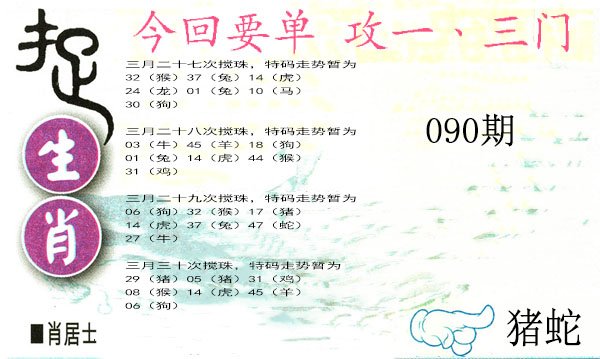 捉
生
肖
■肖居士
今回要单 攻一、三门
三月二十七次搅珠，特码走势暂为
32（猴）37（兔）14（虎）
24（龙）01（兔）10（马）
30（狗）
三月二十八次搅珠，特码走势暂为
03（牛）45（羊）18（狗）
01（兔）14（虎）44（猴）
31（鸡）
三月二十九次搅珠，特码走势暂为
06（狗）32（猴）17（猪）
14（虎）37（兔）47（蛇）
27（牛）
三月三十次搅珠，特码走势暂为
29（猪）05（猪）31（鸡）
08（猴）14（虎）45（羊）
06（狗）
090期
猪蛇